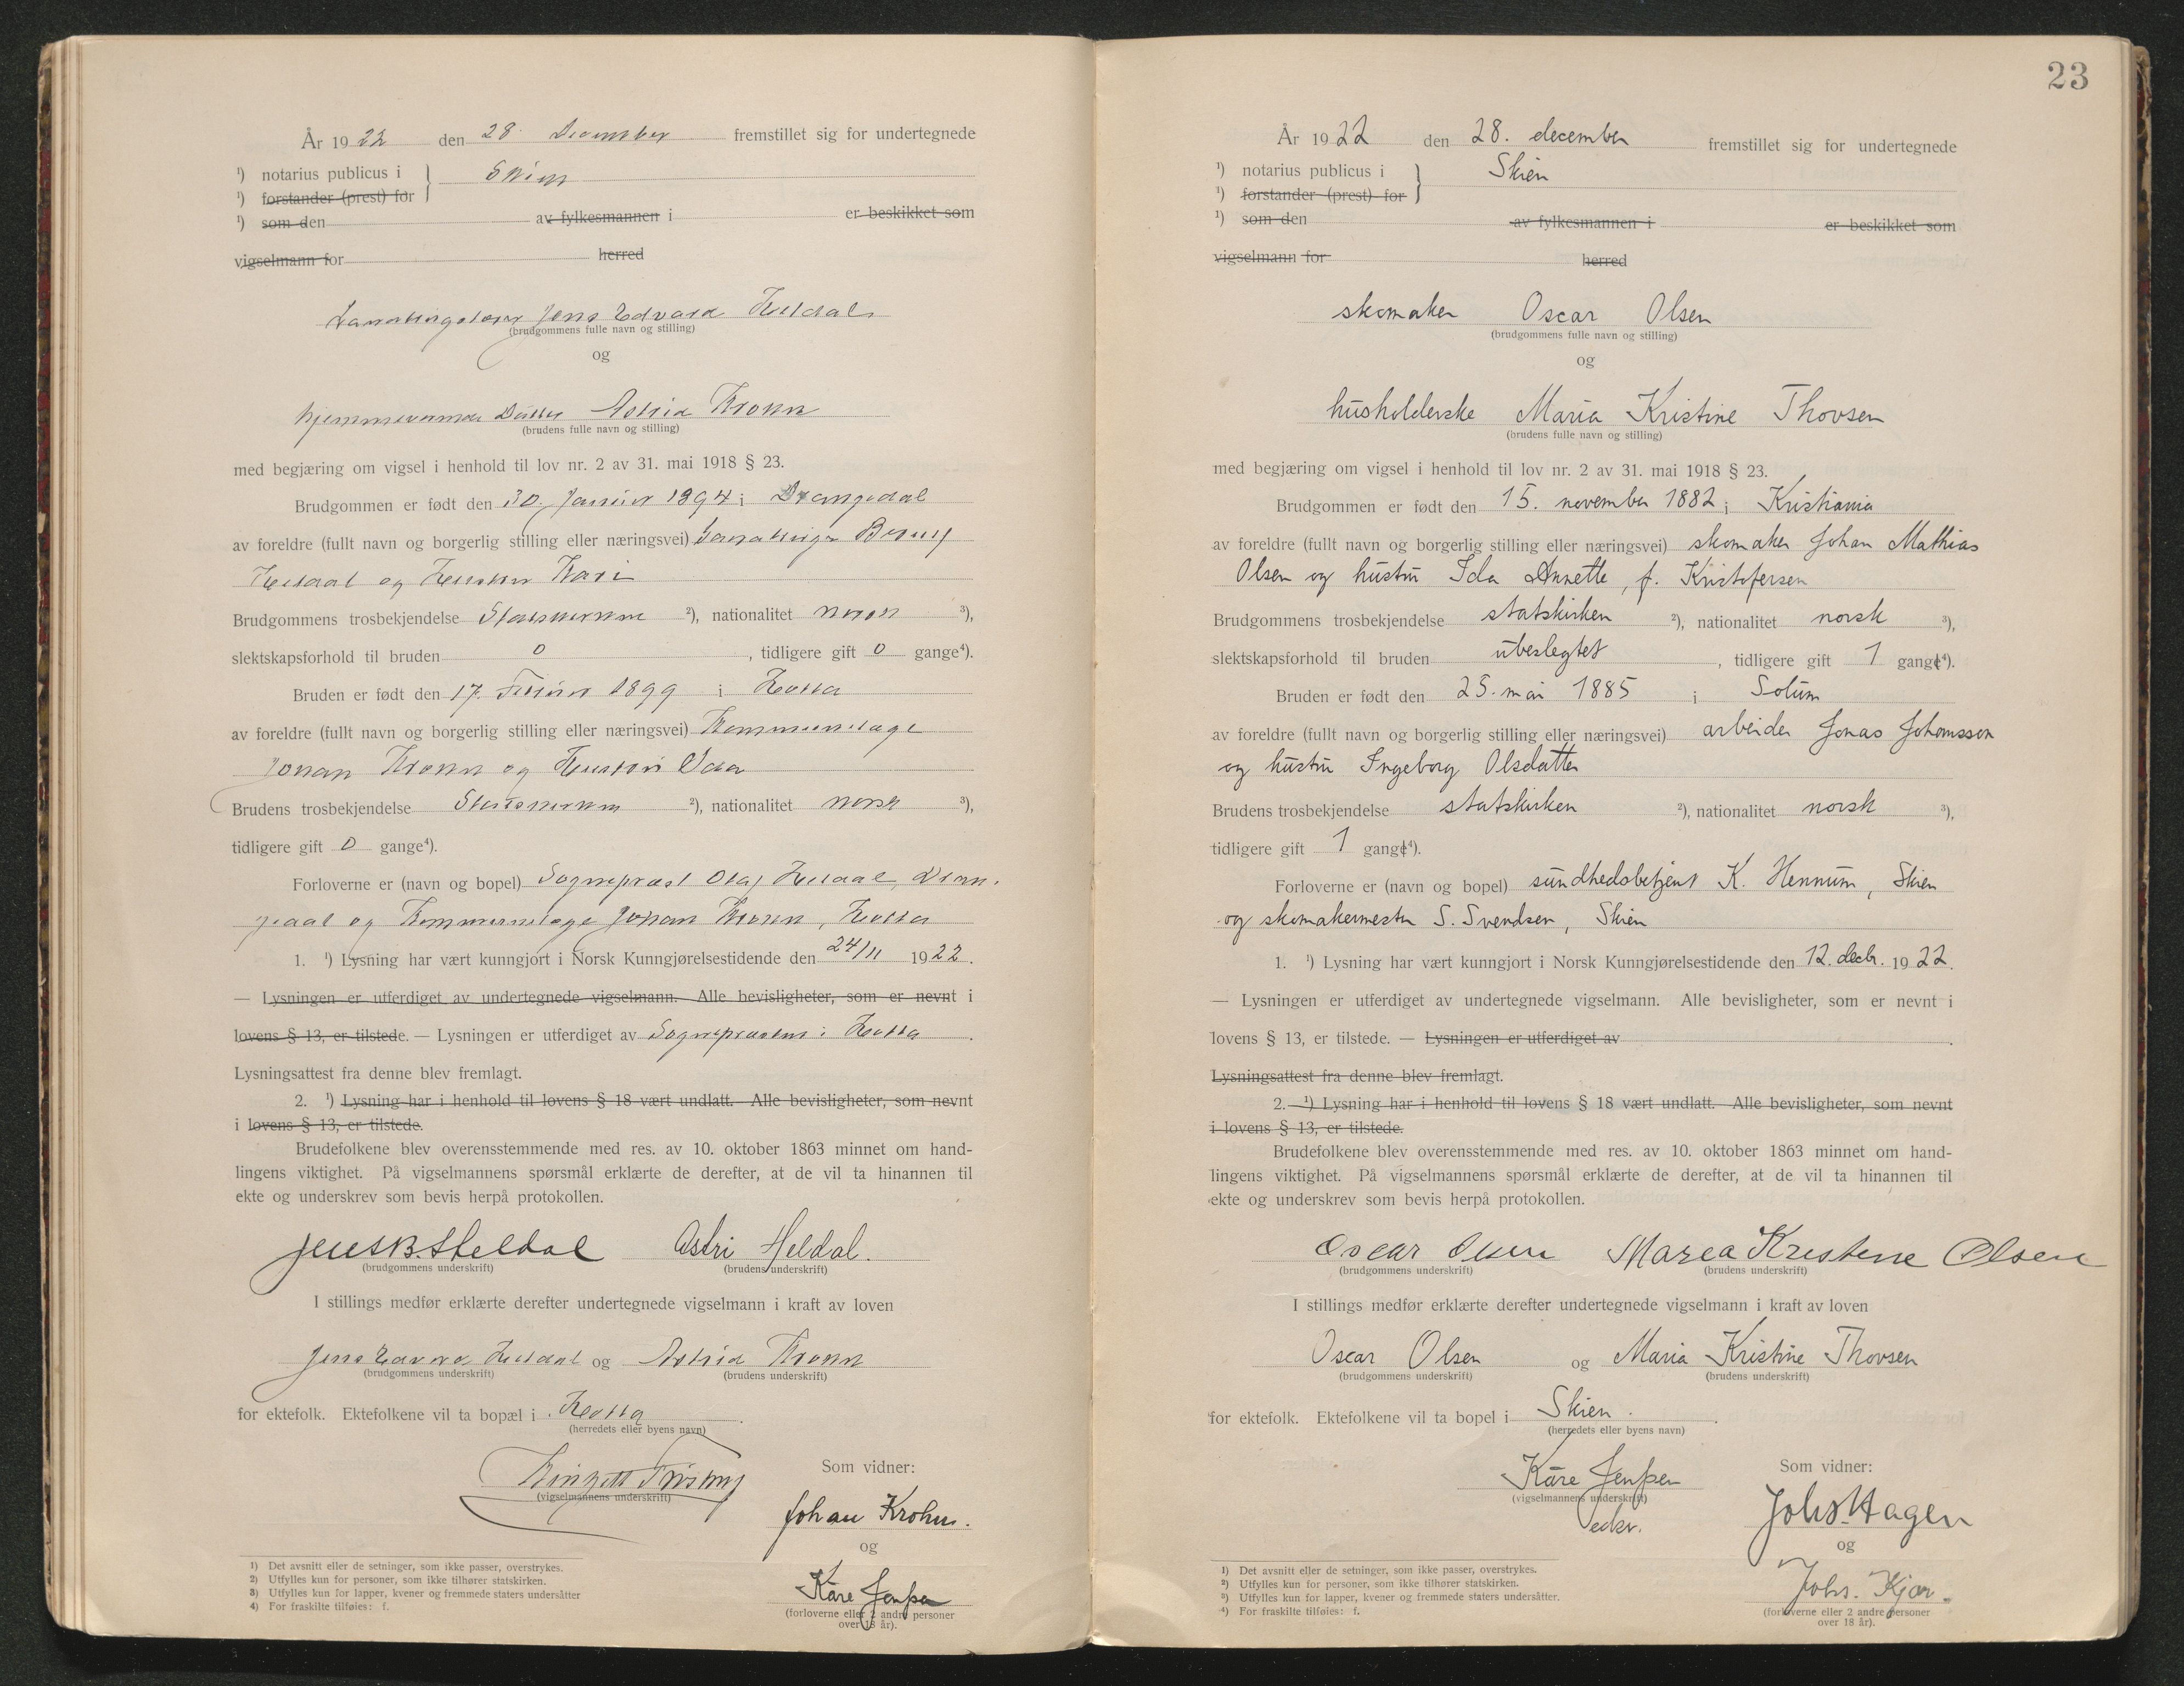 År 1922 den 28. December fremstillet sig for undertegnede
¹) notarius publicus i Skien
¹) forstander (prest) for
¹) som den av fylkesmannen i er beskikket som
vigselmann for herred
Jens Edvard Heldal
(brudgommens fulle navn og stilling)
og
hjemmeværende Datter Astrid Krohn
(brudens fulle navn og stilling)
med begjæring om vigsel i henhold til lov nr. 2 av 31. mai 1918 § 23.
Brudgommen er født den 30. Januar 1894 i Drangedal
av foreldre (fullt navn og borgerlig stilling eller næringsvei)
Heldal og Hustru Kari
Brudgommens trosbekjendelse Statskirken ²), nationalitet norsk ³),
slektskapsforhold til bruden 0, tidligere gift 0 gange⁴).
Bruden er født den 17. Februar 1899 i Holla
av foreldre (fullt navn og borgerlig stilling eller næringsvei) Kommunelæge
Johan Krohn og Hustru Ida
Brudens trosbekjendelse Statskirken ²), nationalitet norsk ³),
tidligere gift 0 gange⁴).
Forloverne er (navn og bopel) Sogneprest Olaf Heldal, Dran-
gedal og Kommunelæge Johan Krohn, Holla
1. ¹) Lysning har vært kunngjort i Norsk Kunngjørelsestidende den 24/11 1922.
— Lysningen er utferdiget av undertegnede vigselmann. Alle bevisligheter, som er nevnt i
lovens § 13, er tilstede. — Lysningen er utferdiget av Sognepresten i Holla.
Lysningsattest fra denne blev fremlagt.
2. ¹) Lysning har i henhold til lovens § 18 vært undlatt. Alle bevisligheter, som nevnt
i lovens § 13, er tilstede.
Brudefolkene blev overensstemmende med res. av 10. oktober 1863 minnet om hand-
lingens viktighet. På vigselmannens spørsmål erklærte de derefter, at de vil ta hinannen til
ekte og underskrev som bevis herpå protokollen.
Jens B. Heldal Astri Heldal.
(brudgommens underskrift) (brudens underskrift)
I stillings medfør erklærte derefter undertegnede vigselmann i kraft av loven
Jens Edvard Heldal og Astrid Krohn
(brudgommens underskrift) (brudens underskrift)
for ektefolk. Ektefolkene vil ta bopæl i Holla.
(herredets eller byens navn)
(vigselmannens underskrift)
Som vidner:
Johan Krohn.
og
Kåre Jenssen
(forloverne eller 2 andre personer
over 18 år).
¹) Det avsnitt eller de setninger, som ikke passer, overstrykes.
²) Utfylles kun for personer, som ikke tilhører statskirken.
³) Utfylles kun for lapper, kvener og fremmede staters undersåtter
⁴) For fraskilte tilføies: f.
23
År 1922 den 28. december fremstillet sig for undertegnede
¹) notarius publicus i Skien
¹) forstander (prest) for
¹) som den av fylkesmannen i er beskikket som
vigselmann for herred
skomaker Oscar Olsen
(brudgommens fulle navn og stilling)
og
husholderske Maria Kristine Thovsen
(brudens fulle navn og stilling)
med begjæring om vigsel i henhold til lov nr. 2 av 31. mai 1918 § 23.
Brudgommen er født den 15. november 1882 i Kristiania
av foreldre (fullt navn og borgerlig stilling eller næringsvei) skomaker Johan Mathias
Olsen og hustru Ida Annette, f. Kristofersen
Brudgommens trosbekjendelse statskirken ²), nationalitet norsk ³),
slektskapsforhold til bruden ubeslegtet, tidligere gift 1 gang⁴).
Bruden er født den 25. mai 1885 i Solum
av foreldre (fullt navn og borgerlig stilling eller næringsvei) arbeider Jonas Johannssen
og hustru Ingeborg Olsdatter
Brudens trosbekjendelse statskirken ²), nationalitet norsk ³),
tidligere gift 1 gang⁴).
Forloverne er (navn og bopel) sundhedsbetjent K. Hennum, Skien
og skomakermester S. Svendsen, Skien
1. ¹) Lysning har vært kunngjort i Norsk Kunngjørelsestidende den 12. decbr. 1922.
— Lysningen er utferdiget av undertegnede vigselmann. Alle bevisligheter, som er nevnt i
lovens § 13, er tilstede. — Lysningen er utferdiget av .
Lysningsattest fra denne blev fremlagt.
2. ¹) Lysning har i henhold til lovens § 18 vært undlatt. Alle bevisligheter, som nevnt
i lovens § 13, er tilstede.
Brudefolkene blev overensstemmende med res. av 10. oktober 1863 minnet om hand-
lingens viktighet. På vigselmannens spørsmål erklærte de derefter, at de vil ta hinannen til
ekte og underskrev som bevis herpå protokollen.
Oscar Olsen Marea Kristene Olsen
(brudgommens underskrift) (brudens underskrift)
I stillings medfør erklærte derefter undertegnede vigselmann i kraft av loven
Oscar Olsen og Maria Kristine Thovsen
(brudgommens underskrift) (brudens underskrift)
for ektefolk. Ektefolkene vil ta bopel i Skien.
(herredets eller byens navn)
Kåre Jenssen
(vigselmannens underskrift)
edsv.
Som vidner:
Johs. Hagen
og
Johs. Kjær.
(forloverne eller 2 andre personer
over 18 år).
¹) Det avsnitt eller de setninger, som ikke passer, overstrykes.
²) Utfylles kun for personer, som ikke tilhører statskirken.
³) Utfylles kun for lapper, kvener og fremmede staters undersåtter.
⁴) For fraskilte tilføies: f.